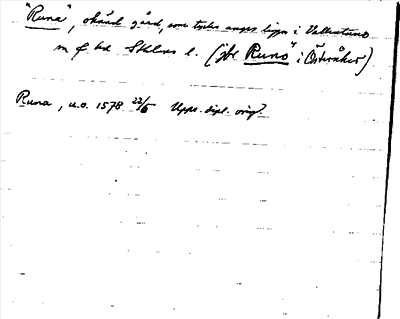 "Runa", okänd gård, som tycks anges ligga i Vallentuna
sn o hd Sthlms l. (jfr Runö i Österåker)
Runa, u.o. 1578 22/5 Upps. dipl. orig.